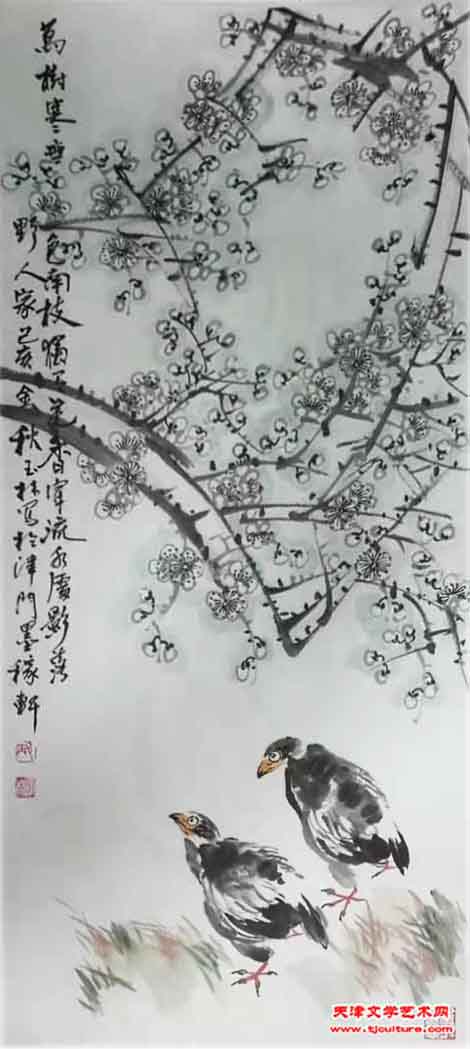 萬樹寒無色南枝獨有花香聞流水處影落
野人家己亥金秋玉林写於津門墨稼軒
天津文学艺术网
www.tjculture.com